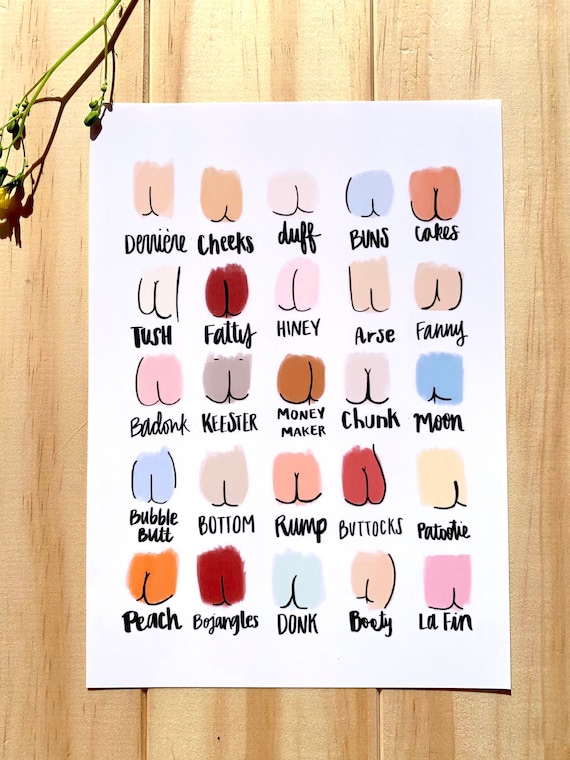 Derrière Cheeks duff BUNS Cakes
TUSH Fatty HINEY Arse Fanny
Badonk KEESTER MONEY MAKER Chunk Moon
Bubble Butt BOTTOM Rump BUTTOCKS Patootie
Peach Bojangles DONK Booty La Fin